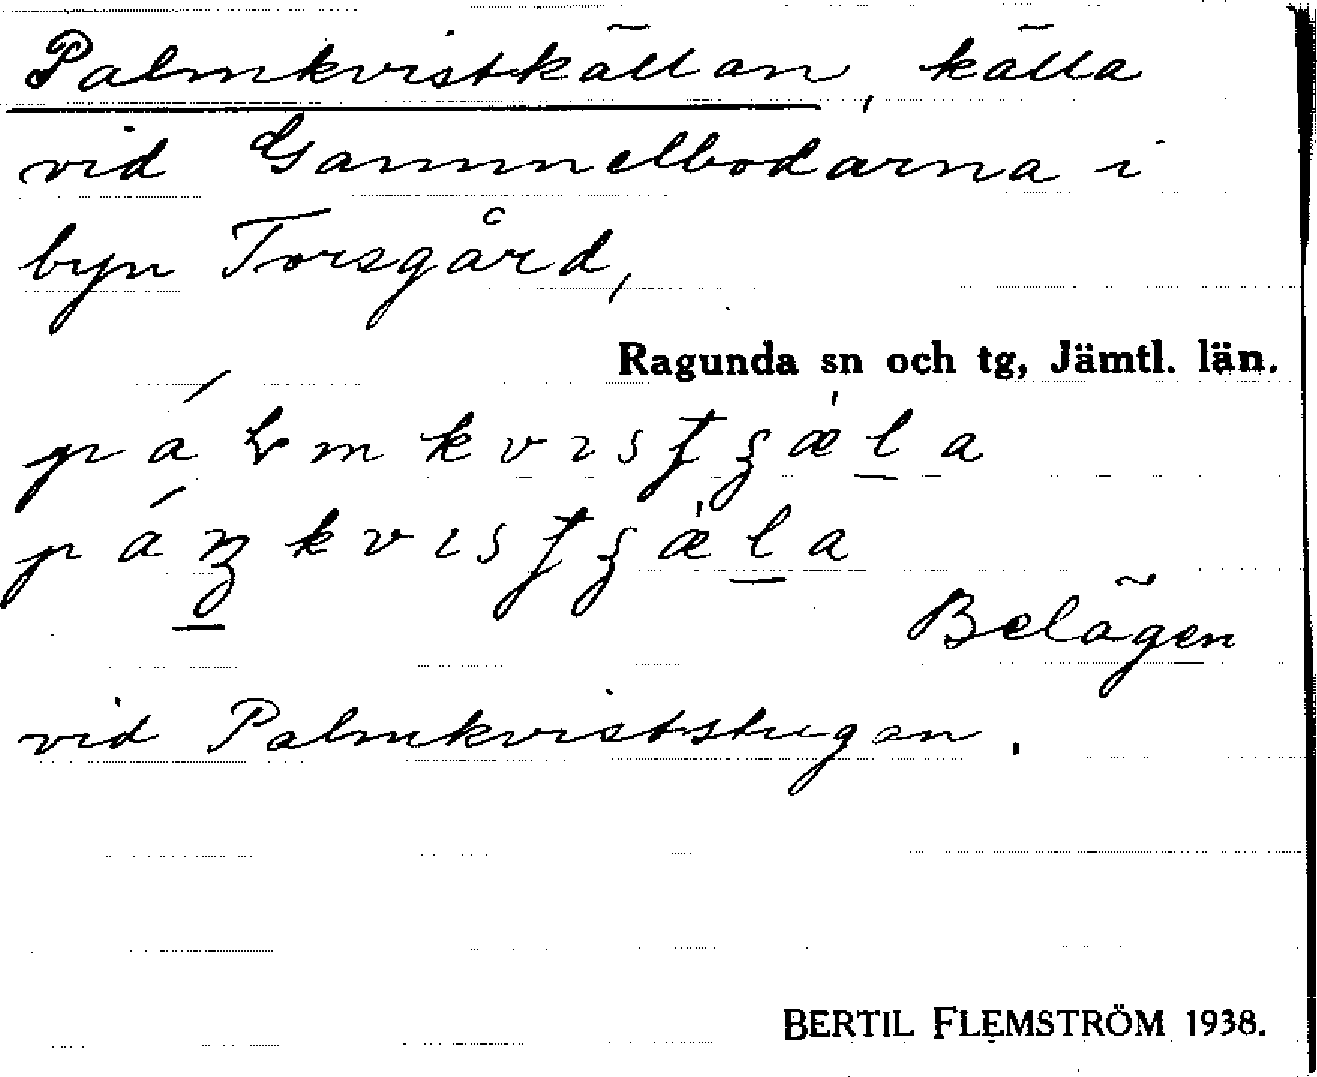 Palmkvistkällan, källa
vid Gammelbodarna i
byn Torsgård,
Ragunda sn och tg, Jämtl. län.
Belägen
vid Palmkviststugan.
BERTIL FLEMSTRÖM 1938.